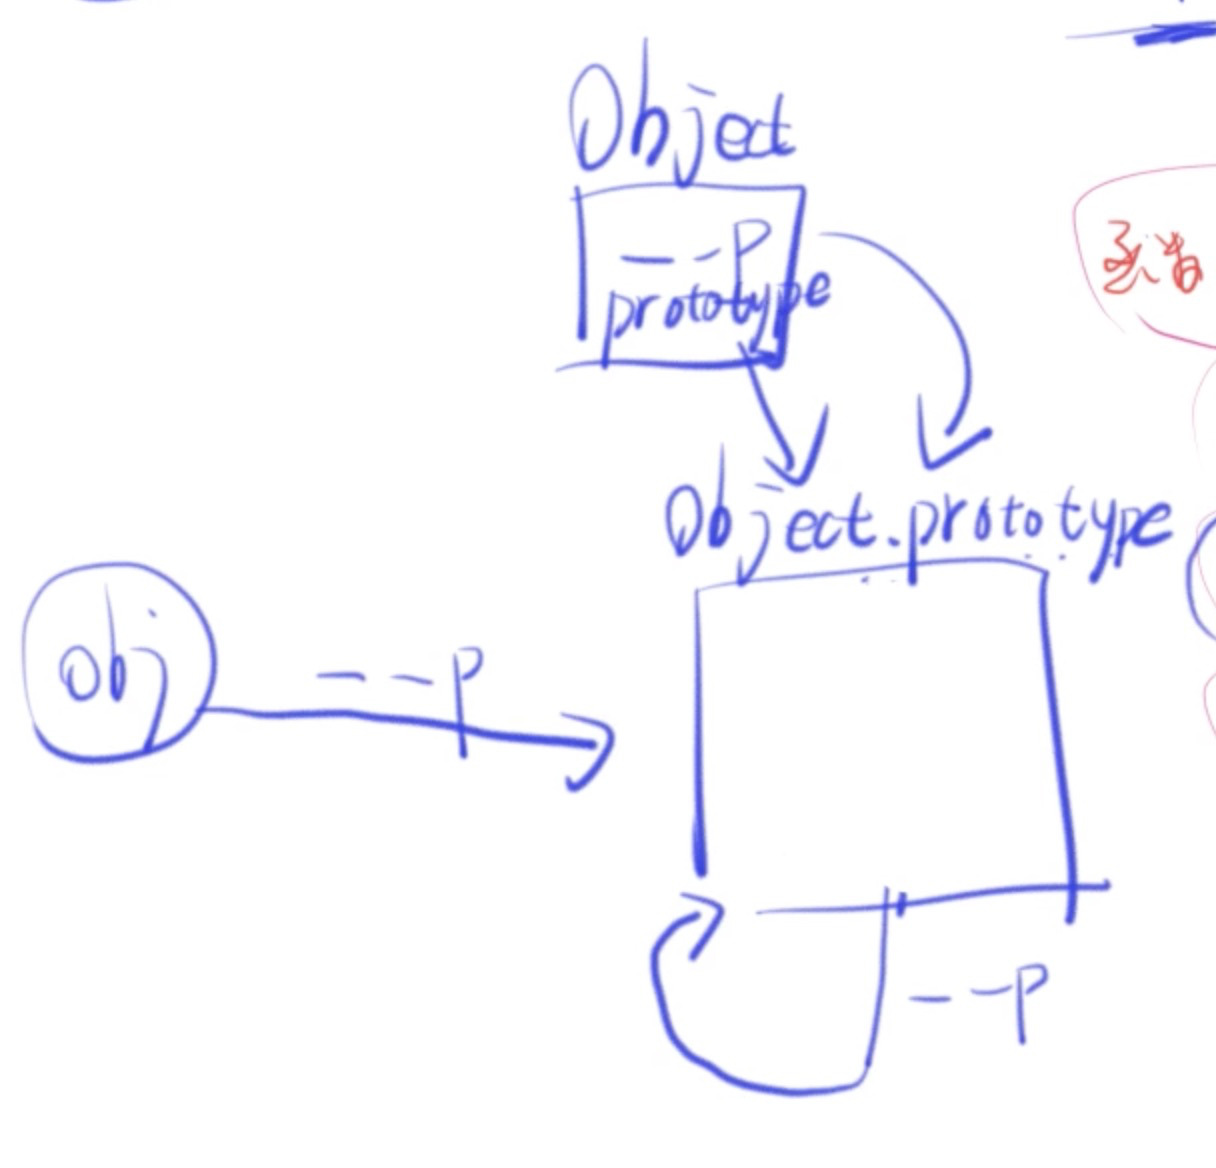 Object
__P
prototype
Object.prototype
obj
__P
__P